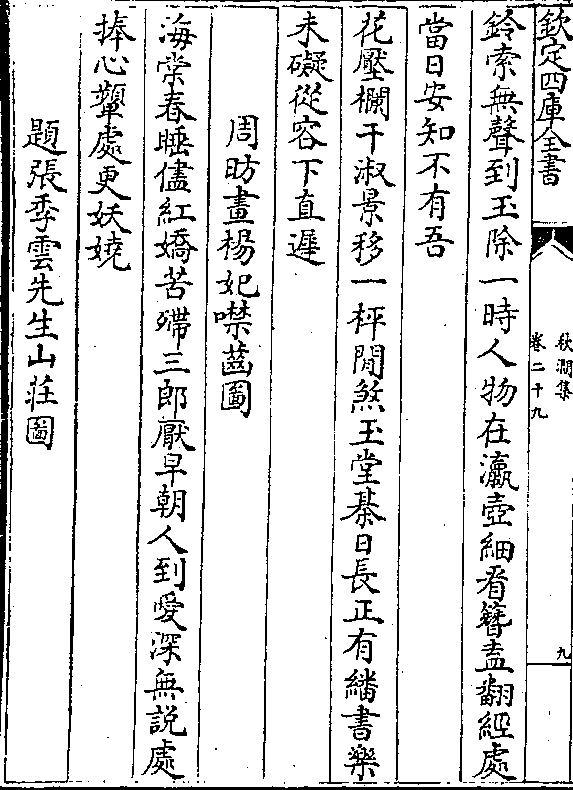 欽定四庫全書
秋澗集
卷二十九
九
鈴索無聲到玉除一時人物在瀛壺細看簪盍翻經處
當日安知不有吾
花壓欄干淑景移一枰閒煞玉堂棊日長正有繙書樂
未礙從容下直遲
周昉畫楊妃噤齒圖
海棠春睡儘紅嬌苦殢三郎厭早朝人到愛深無説處
捧心顰處更妖嬈
題張季雲先生山莊圖